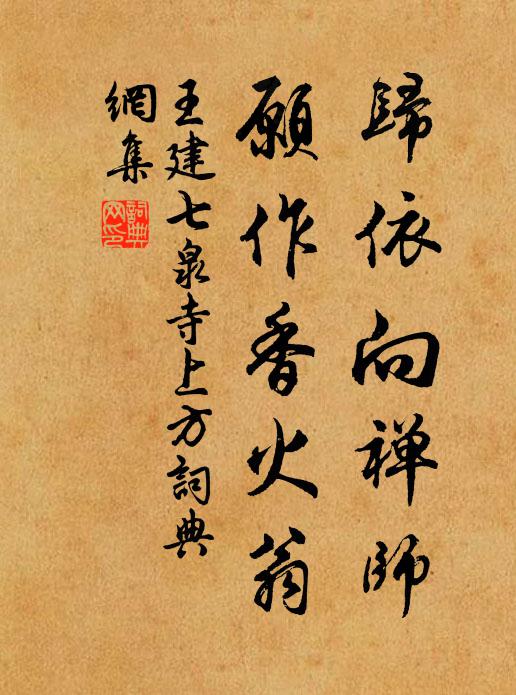 歸依向禅師
願作香火翁
王建七泉寺上方詞典
網集
詞典
网印